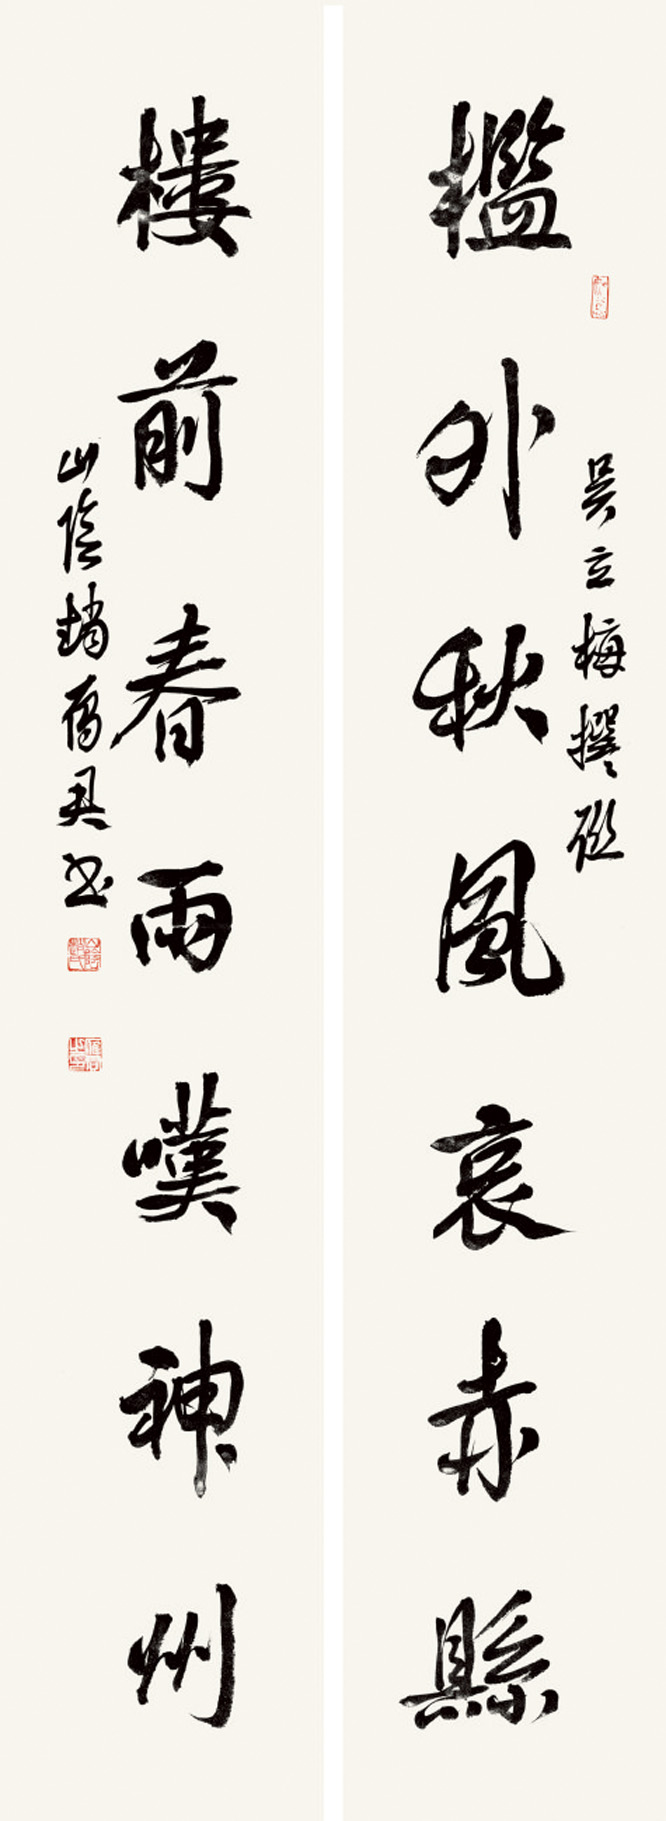 檻外秋風哀赤縣
吴立梅撰聯
樓前春雨嘆神州
山陰趙雁君书